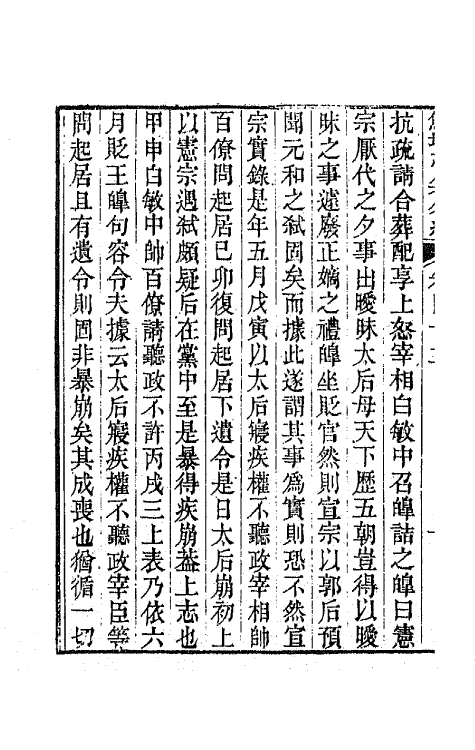 抗疏請合葬配享上怒宰相白敏中召皥詰之皥曰憲
宗厭代之夕事出曖昧太后母天下歷五朝豈得以曖
昧之事遽廢正嫡之禮皥坐貶官然則宣宗以郭后預
聞元和之弑固矣而據此遂謂其事爲實則恐不然宣
宗實錄是年五月戊寅以太后寢疾權不聽政宰相帥
百僚問起居己卯復問起居下遺令是日太后崩初上
以憲宗遇弑頗疑后在黨中至是暴得疾崩葢上志也
甲申白敏中帥百僚請聽政不許丙戌三上表乃依六
月貶王皥句容令夫據云太后寢疾權不聽政宰臣等
問起居且有遺令則固非暴崩矣其成喪也猶循一切